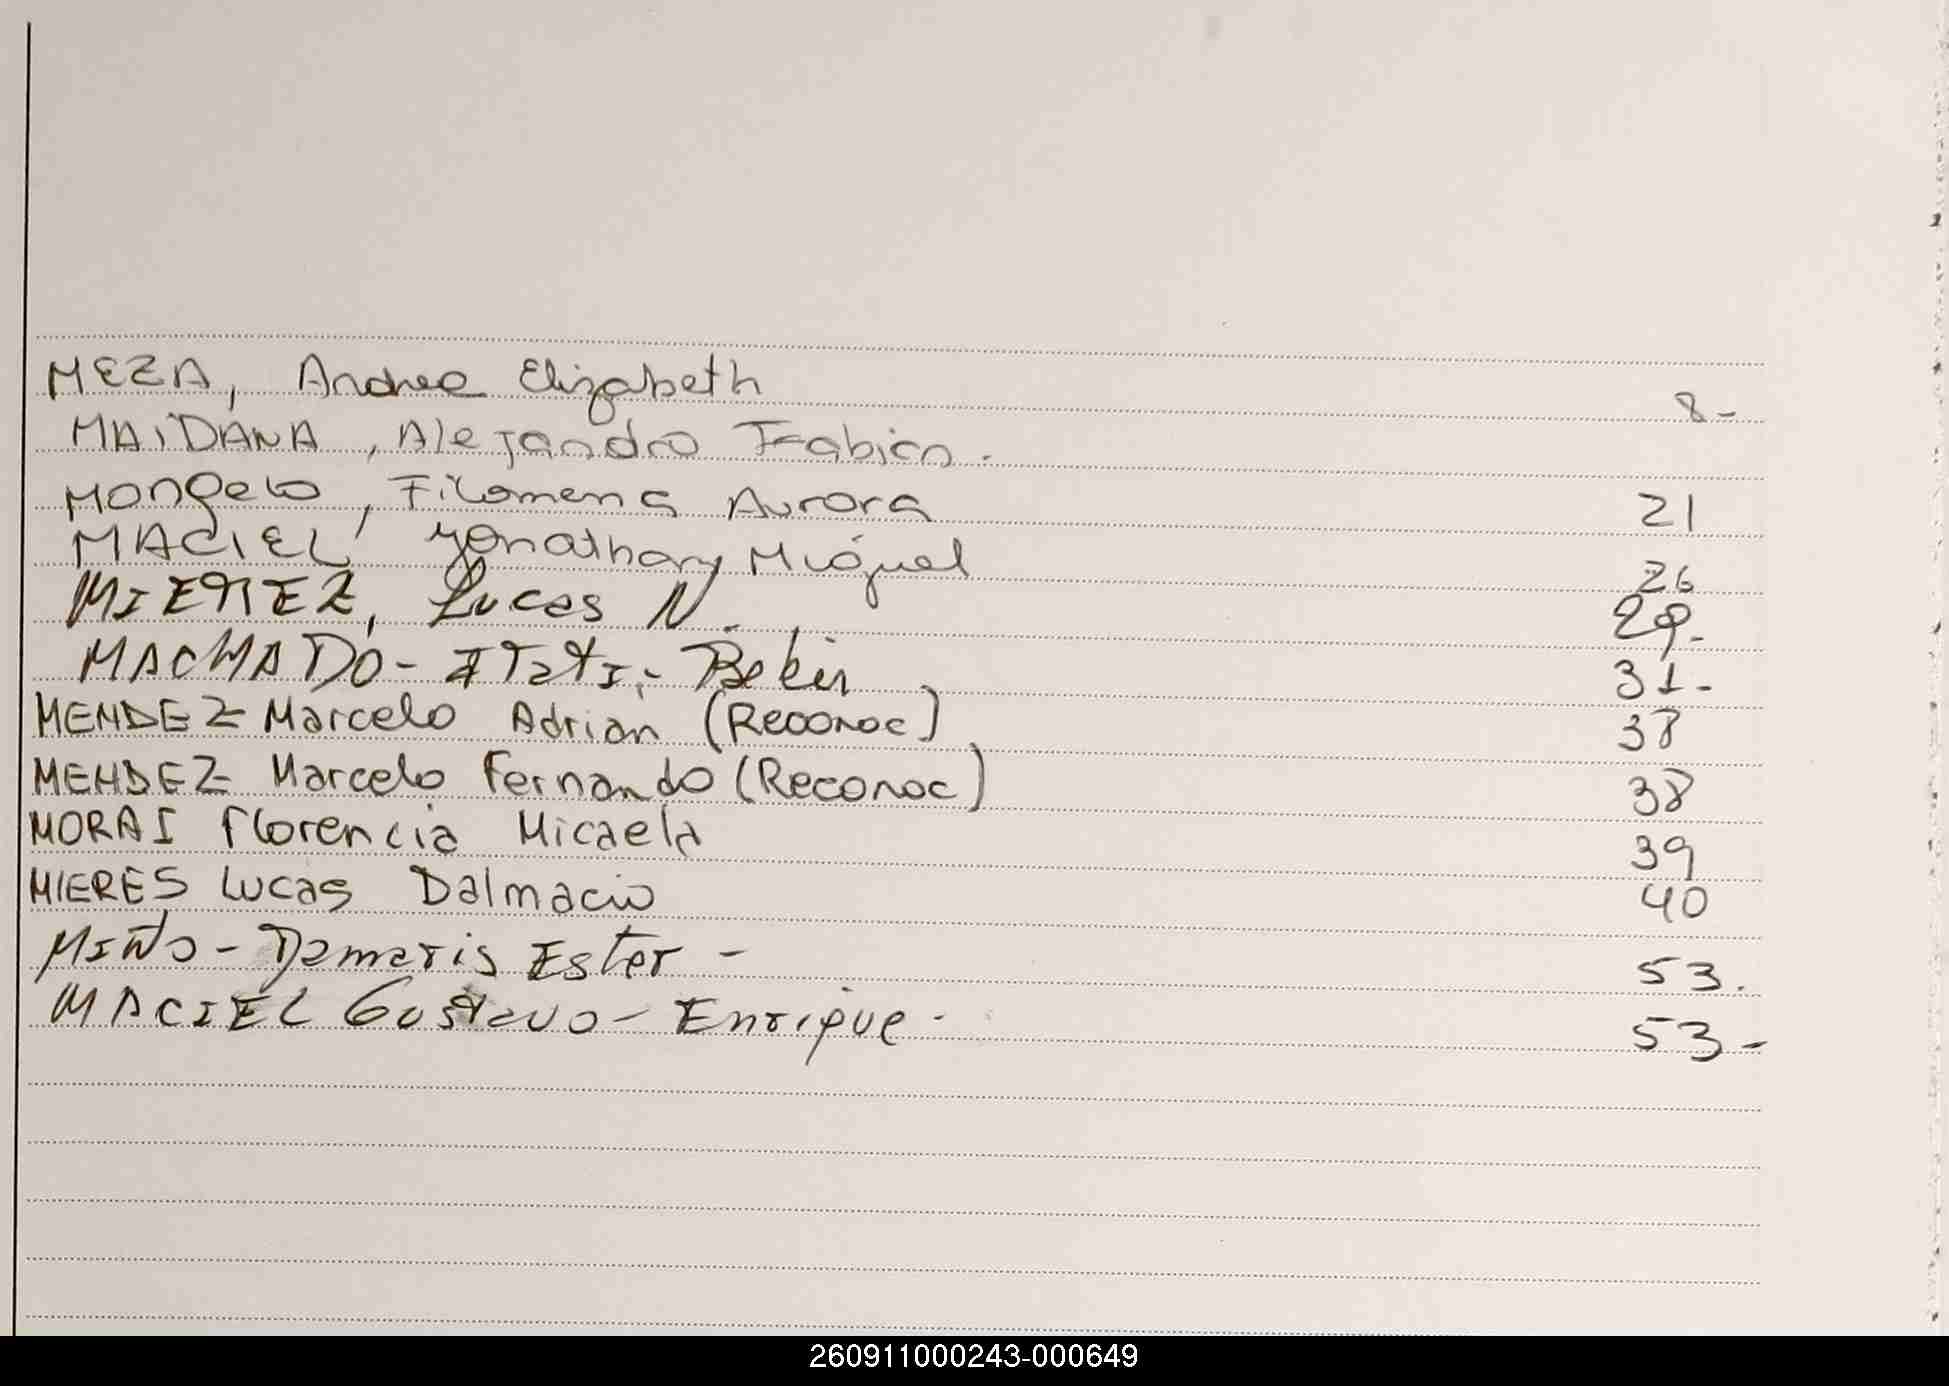 MEZA, Andrea Elizabeth 8-
MAIDANA, Alejandro Fabian.
Mongelo, Filomena Aurora 21
MACIEL, Yonathan Miguel 26
MIEREZ, Lucas N. 29.
MACHADO - ITATI - 31-
MENDEZ Marcelo Adrian (Reconoc) 38
MENDEZ Marcelo Fernando (Reconoc) 38
MORAI Florencia Micaela 39
MIERES Lucas Dalmacio 40
MIÑO - Damaris Ester - 53.
MACIEL Gustavo - Enrique - 53-
260911000243-000649